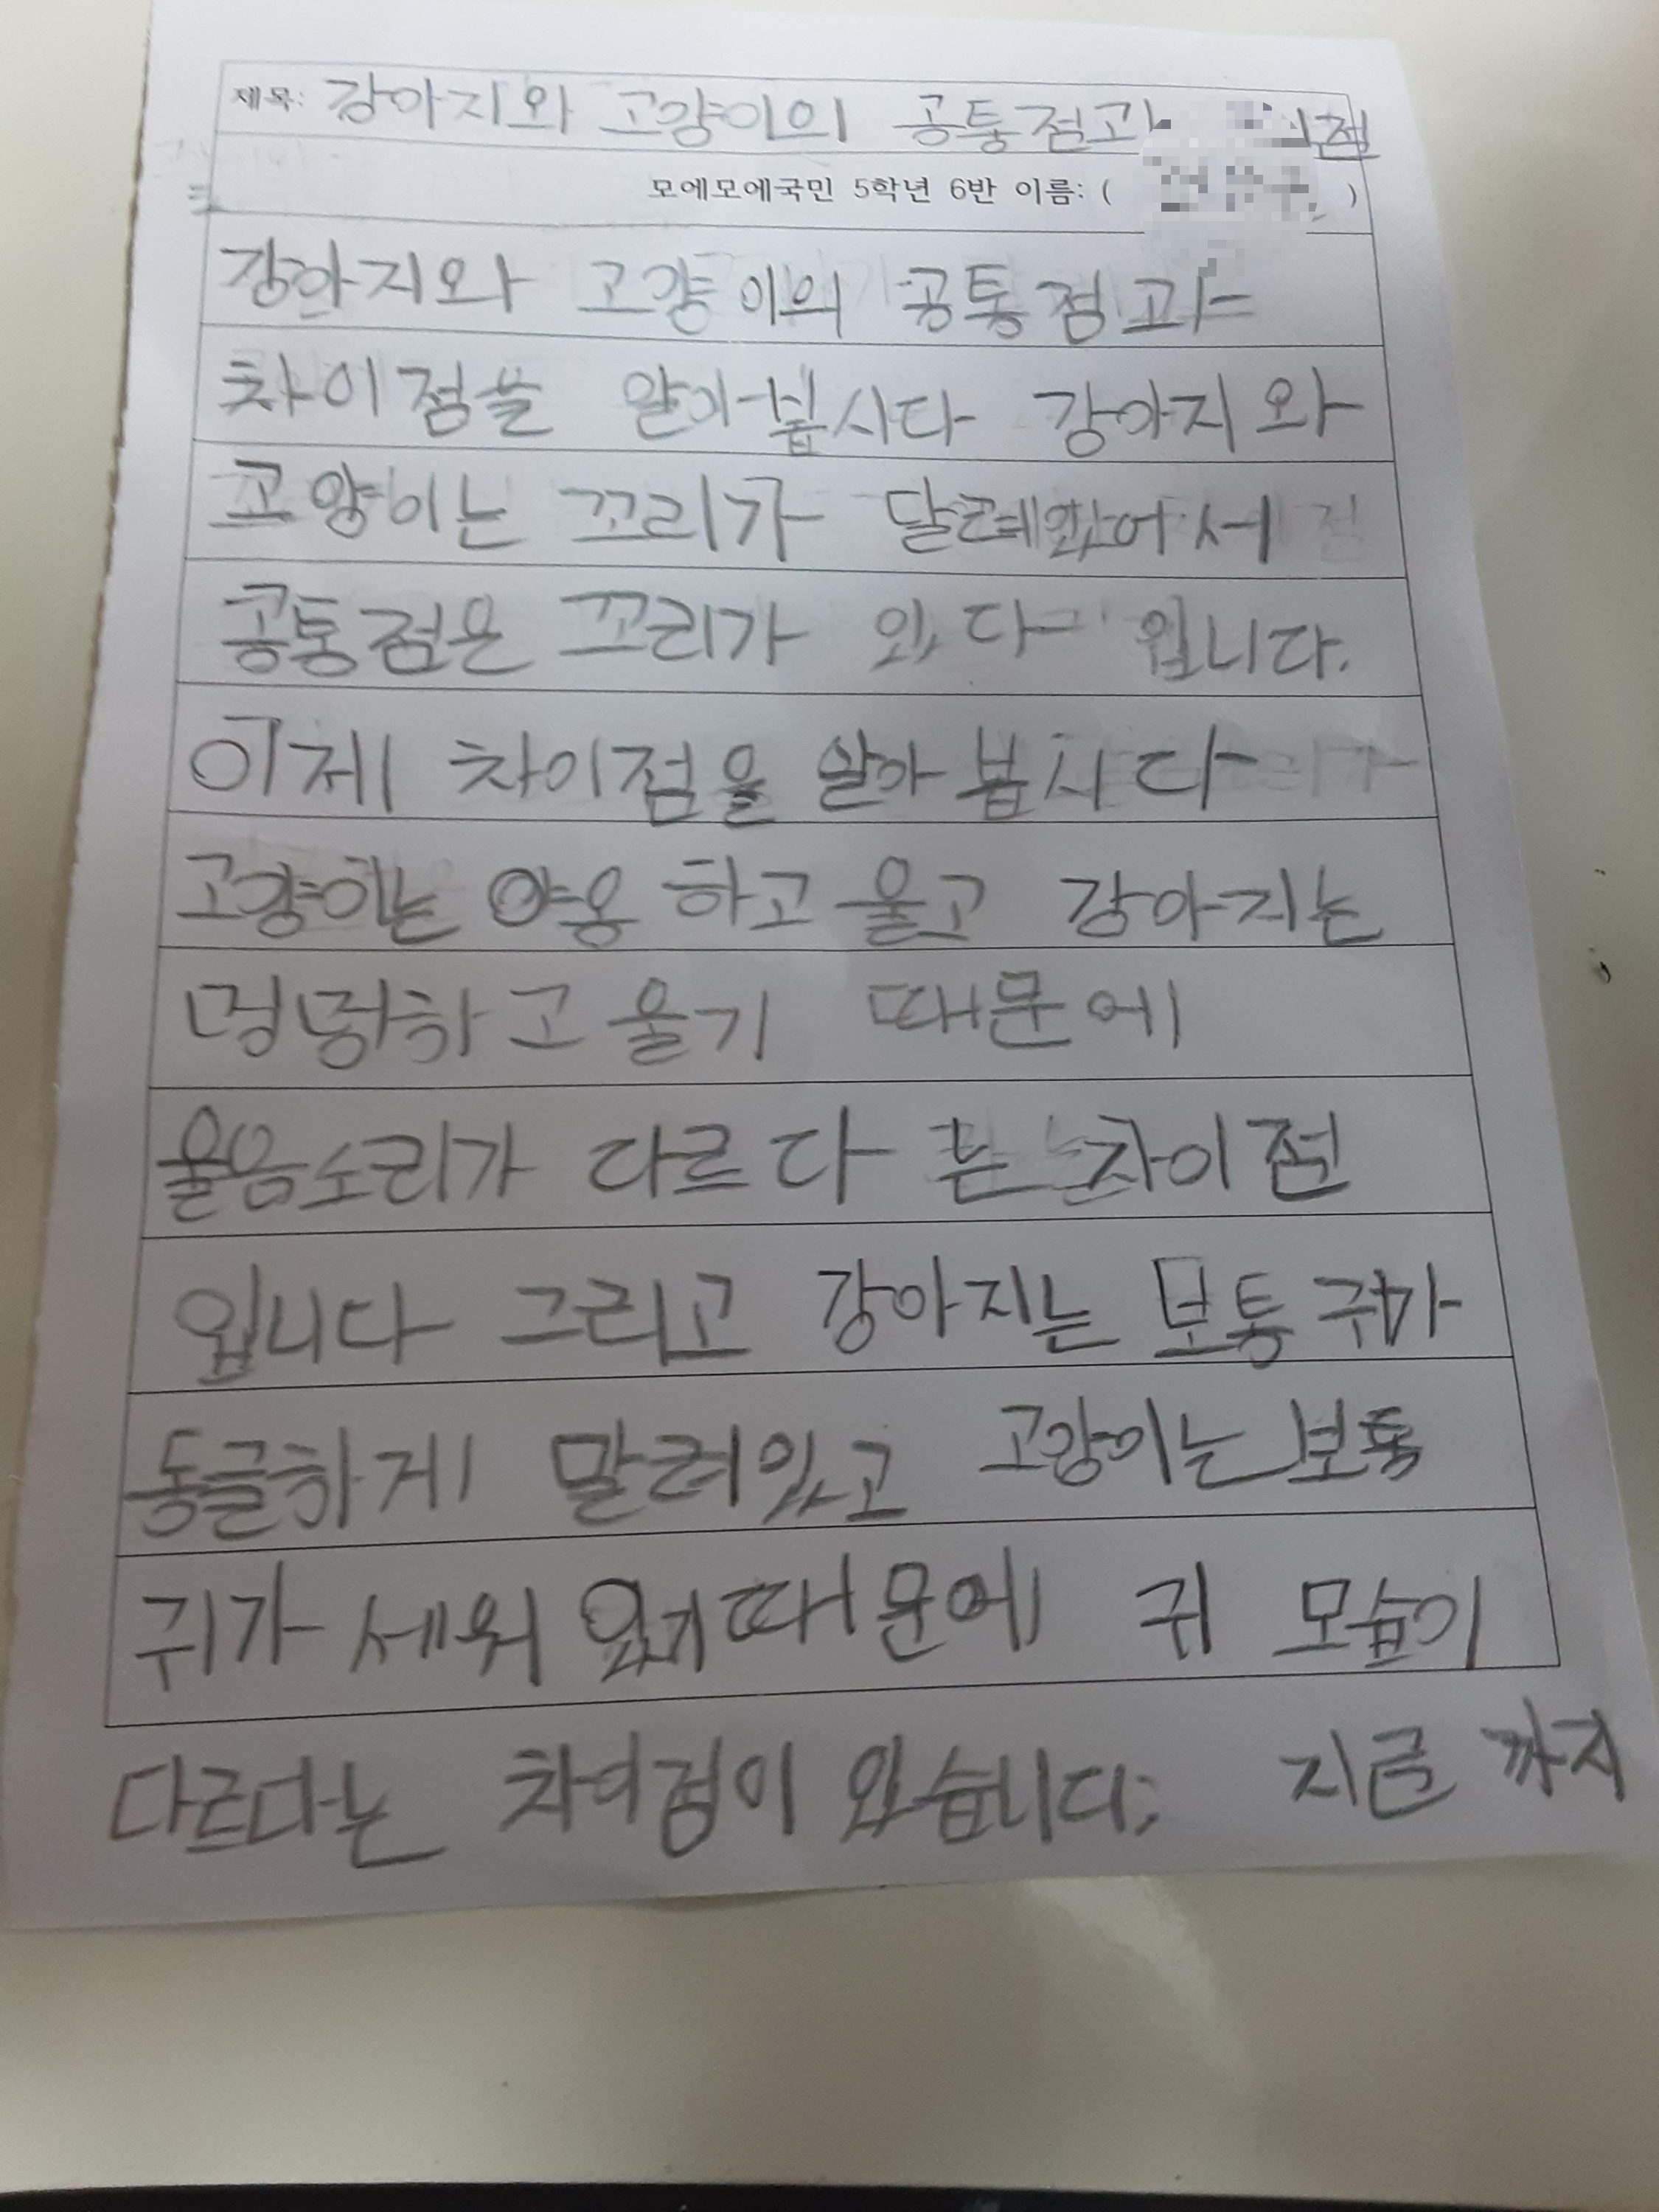 제목: 강아지와 고양이의 공통점과
모에모에국민 5학년 6반 이름: ( )
강아지와 고양이의 공통점과
차이점을 알아봅시다 강아지와
고양이는 꼬리가 달레있어서
공통점은 꼬리가 있다 입니다.
이제 차이점을 알아봅시다
고양이는 야옹 하고 울고 강아지는
멍멍하고 울기 때문에
울음소리가 다르다 는 차이점
입니다 그리고 강아지는 보통 귀가
동글하게 말려있고 고양이는 보통
귀가 세워 있기때문에 귀 모습이
다르다는 차이점이 있습니다. 지금 까지